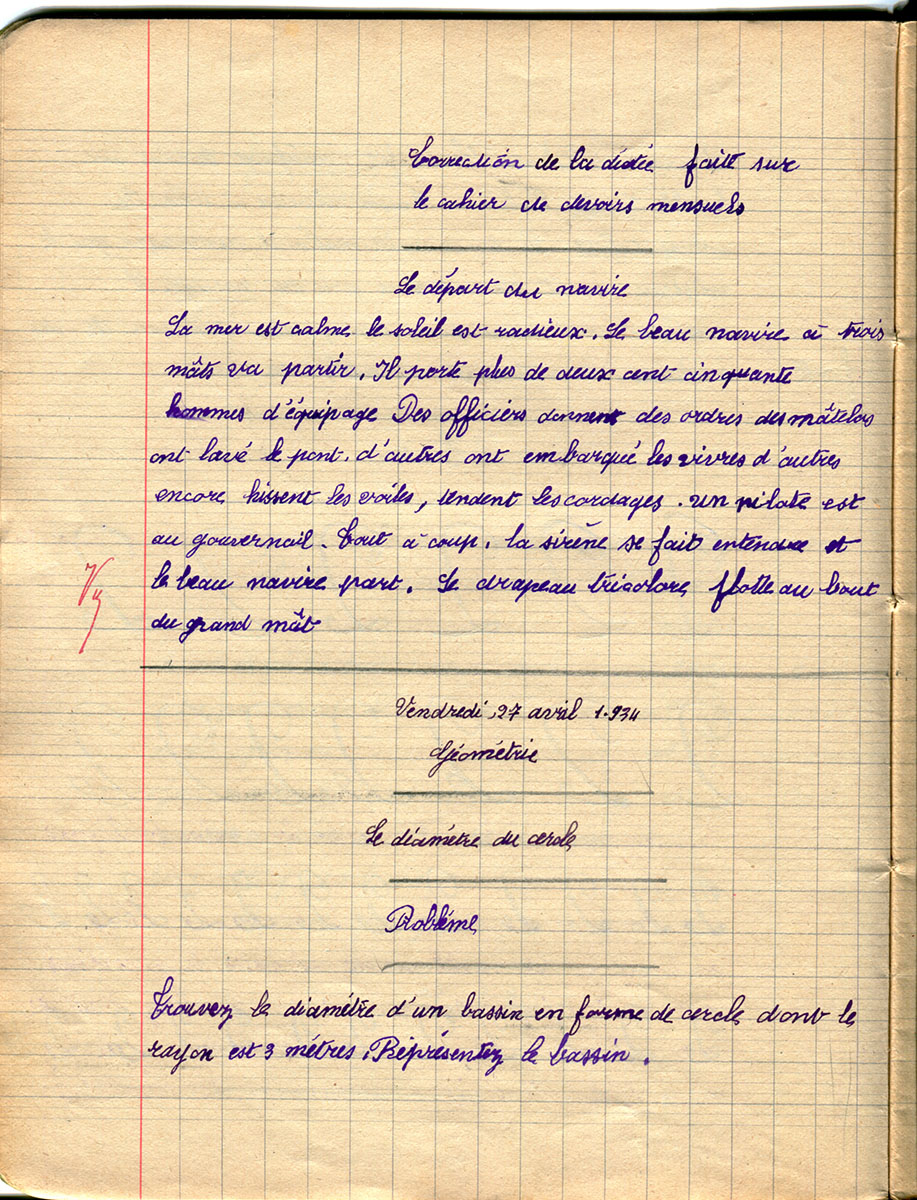 Correction de la dictée faite sur
le cahier de devoirs mensuels
Le départ du navire
La mer est calme le soleil est radieux. Le beau navire à trois
mâts va partir. Il porte plus de deux cent cinquante
hommes d'équipage Des officiers donnent des ordres des mâtelos
ont lavé le pont. d'autres ont embarqué les vivres d'autres
encore hissent les voiles, tendent les cordages. un pilote est
au gouvernail. Tout à coup, la sirène se fait entendre et
le beau navire part. Le drapeau tricolore flotte au bout
du grand mât
Vendredi, 27 avril 1.934
Géométrie
Le diamétre du cercle
Probléme
Trouvez le diamétre d'un bassin en forme de cercle dont le
rayon est 3 métres. Réprésentez le bassin.